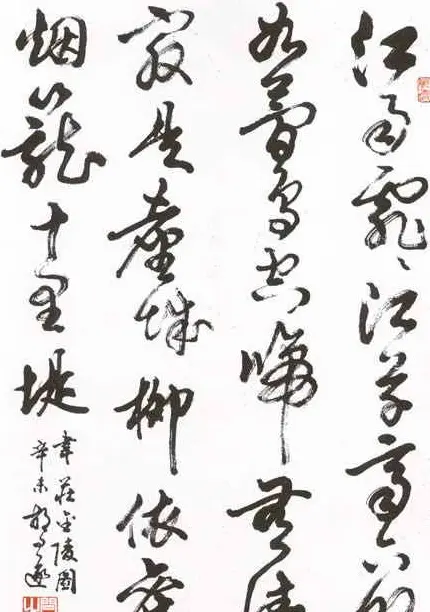 江雨霏〻江草齊六
如夢鳥空啼無情
最是臺城柳依舊
烟籠十里堤
韋莊金陵圖
辛未胡问遂